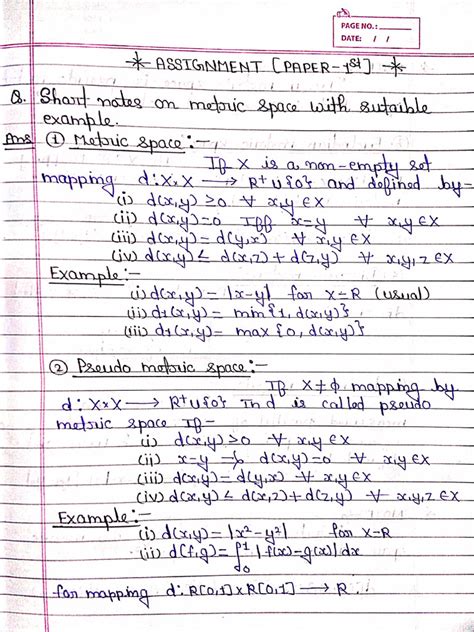 PAGE NO.:
DATE: / /
* ASSIGNMENT [PAPER-1st] *
Q. Short notes on metric space with sutaible
example.
Ans ① Metric space:-
If X is a non-empty set
mapping d: X×X → R⁺∪{0} and defined by-
(i) d(x,y) ≥0 ∀ x,y∈X
(ii) d(x,y)=0 Iff x=y ∀ x,y∈X
(iii) d(x,y)= d(y,x) ∀ x,y∈X
(iv) d(x,y) ≤ d(x,z) + d(z,y) ∀ x,y,z∈X
Example:-
(i) d(x,y)= |x-y| for X=R (usual)
(ii) d1(x,y)= min{1, d(x,y)}
(iii) d1(x,y)= max{0, d(x,y)}
② Pseudo metric space:-
If X≠ϕ mapping by
d: X×X → R⁺∪{0} d is called pseudo
metric space If-
(i) d(x,y)≥0 ∀ x,y∈X
(ii) x=y d(x,y)=0 ∀ x,y∈X
(iii) d(x,y)= d(y,x) ∀ x,y∈X
(iv) d(x,y) ≤ d(x,z)+d(z,y) ∀ x,y,z∈X
Example:-
(i) d(x,y)= |x²-y²| for X=R
(ii) d(f,g)= ∫₀¹ |f(x)-g(x)| dx
for mapping d: R[0,1]×R[0,1] → R.